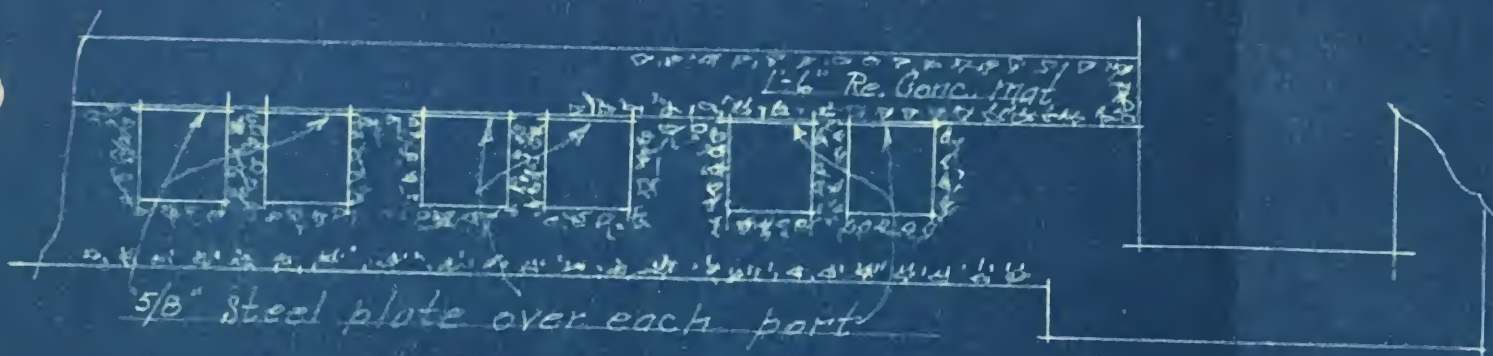 1'-6" Re. Conc. mat
5/8" Steel plate over each port